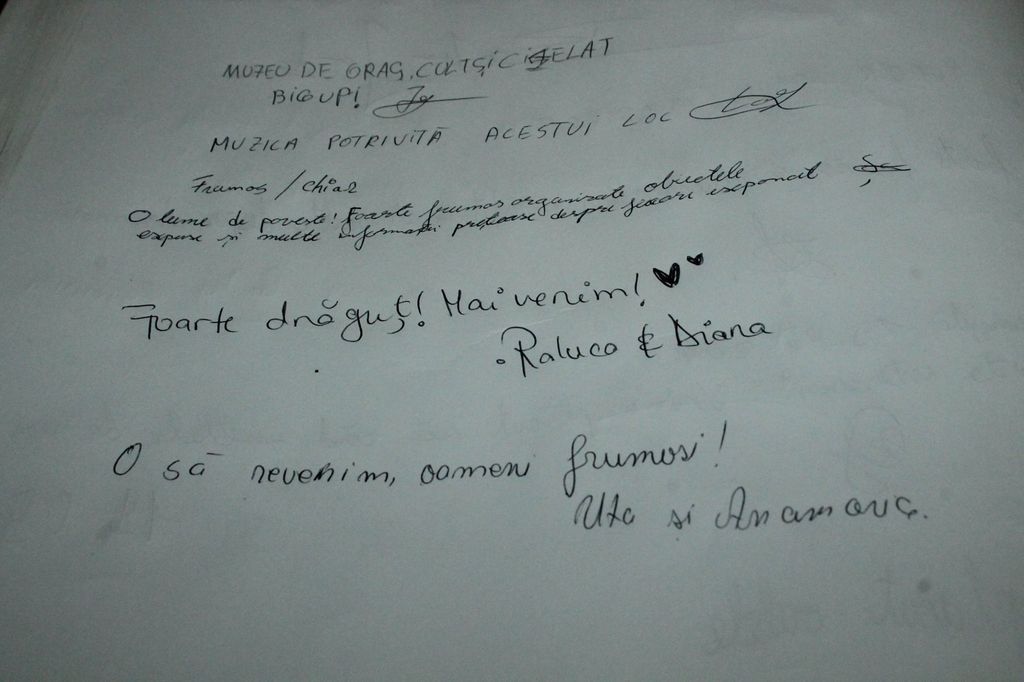 MUZEU DE ORAȘ, CULT ȘI CIZELAT
BIG UP!
MUZICA POTRIVITĂ ACESTUI LOC
Frumos / chiar
O lume de poveste! Foarte frumos organizate obiectele
expuse și multe informații prețioase despre fiecare exponat
Foarte drăguț! Mai venim!
Raluca & Diana
O să revenim, oameni frumoși!
și